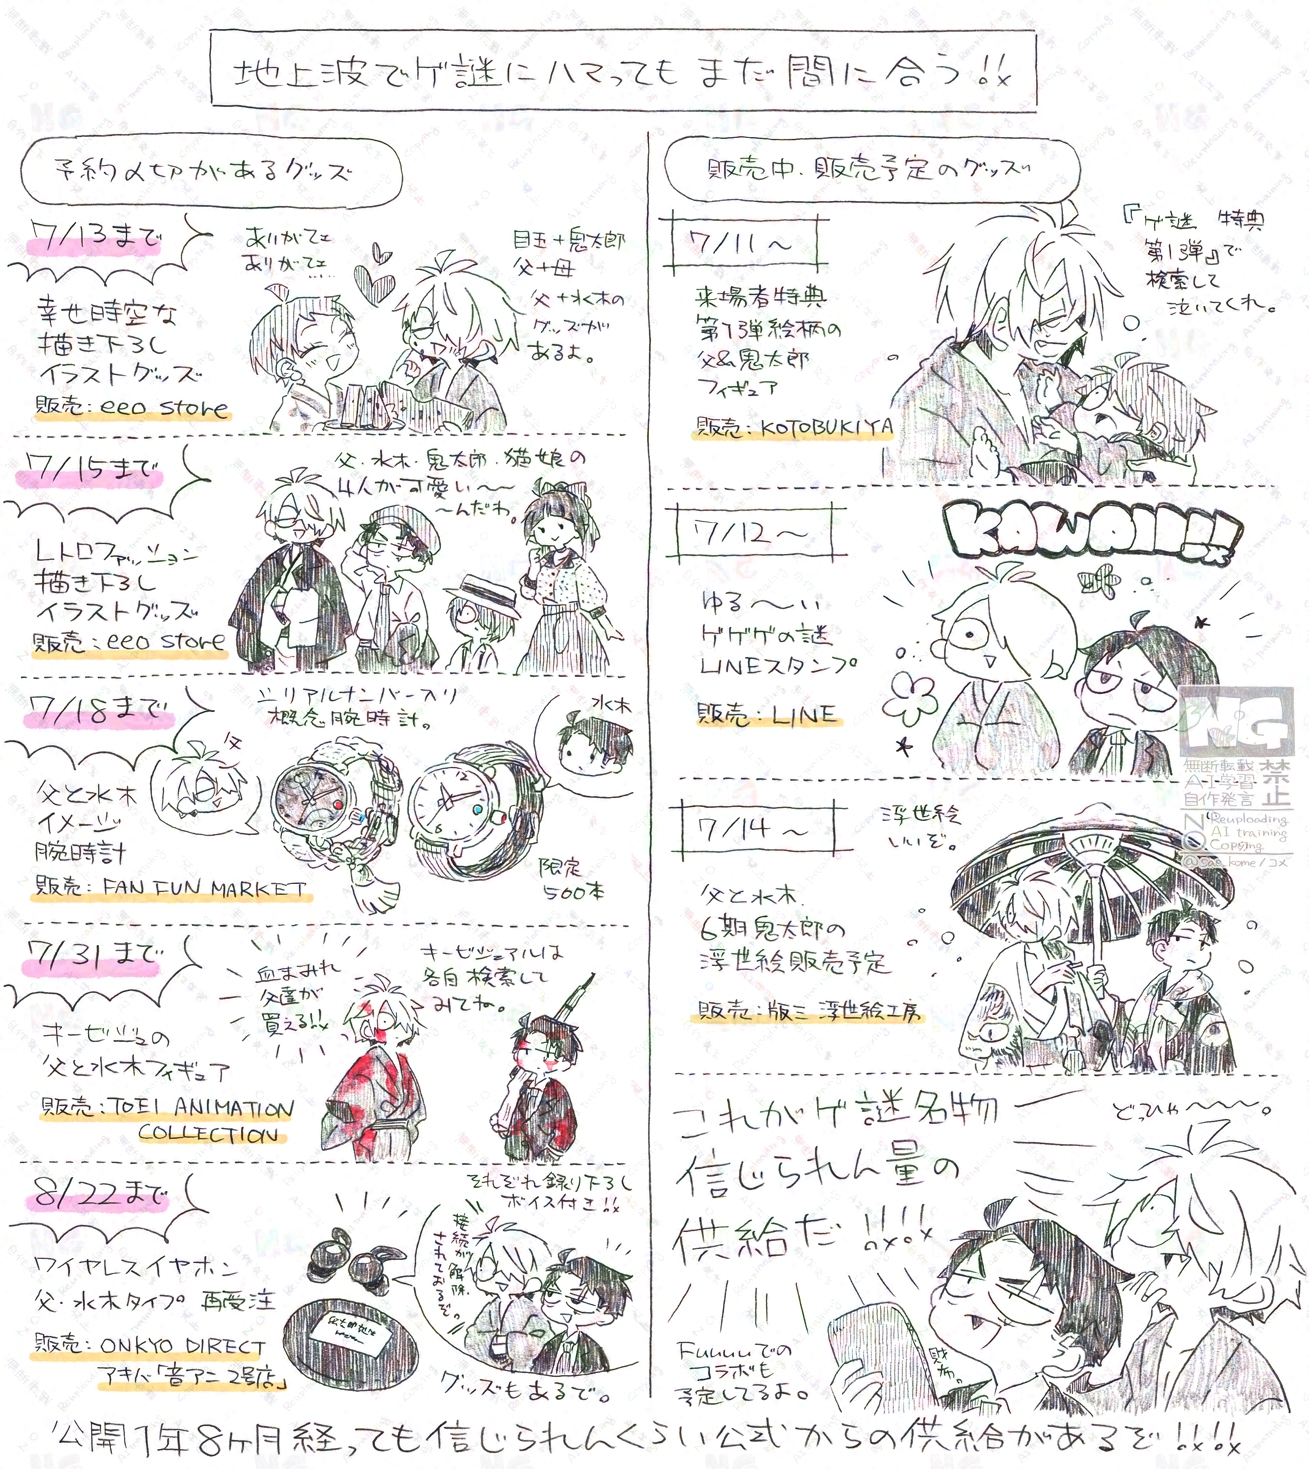 地上波でゲ謎にハマってもまだ間に合う!!
予約〆切があるグッズ
7/13まで
ありがてェ
ありがてェ……
目玉+鬼太郎
父+母
父+水木の
グッズが
あるよ。
幸せ時空な
描き下ろし
イラストグッズ
販売：eeo store
7/15まで
父・水木・鬼太郎・猫娘の
4人が可愛い〜〜
〜んだわ。
レトロファッション
描き下ろし
イラストグッズ
販売：eeo store
7/18まで
シリアルナンバー入り
概念腕時計。
父
水木
父と水木
イメージ
腕時計
限定
500本
販売：FAN FUN MARKET
7/31まで
血まみれ
父達が
買える!!
キービジュアルは
各自検索して
みてね。
キービジュの
父と水木フィギュア
販売：TOEI ANIMATION
COLLECTION
8/22まで
それぞれ録り下ろし
ボイス付き!!
接続が解除
されておるぞ。
ワイヤレスイヤホン
父・水木タイプ 再受注
販売：ONKYO DIRECT
アキバ「音アニ2号店」
グッズもあるで。
販売中・販売予定のグッズ
7/11〜
『ゲ謎 特典
第1弾』で
検索して
泣いてくれ。
来場者特典
第1弾絵柄の
父&鬼太郎
フィギュア
販売：KOTOBUKIYA
7/12〜
KAWAII!!
ゆる〜い
ゲゲゲの謎
LINEスタンプ
販売：LINE
NG
無断転載
AI学習
自作発言
禁止
NO
Reuploading
AI training
Copying
7/14〜
浮世絵
いいぞ。
父と水木、
6期鬼太郎の
浮世絵販売予定
販売：版三 浮世絵工房
これがゲ謎名物
信じられん量の
供給だ!!!!
どっひゃ〜〜〜。
Fuuuでの
コラボも
予定してるよ。
公開1年8ヶ月経っても信じられんくらい公式からの供給があるぞ!!!!